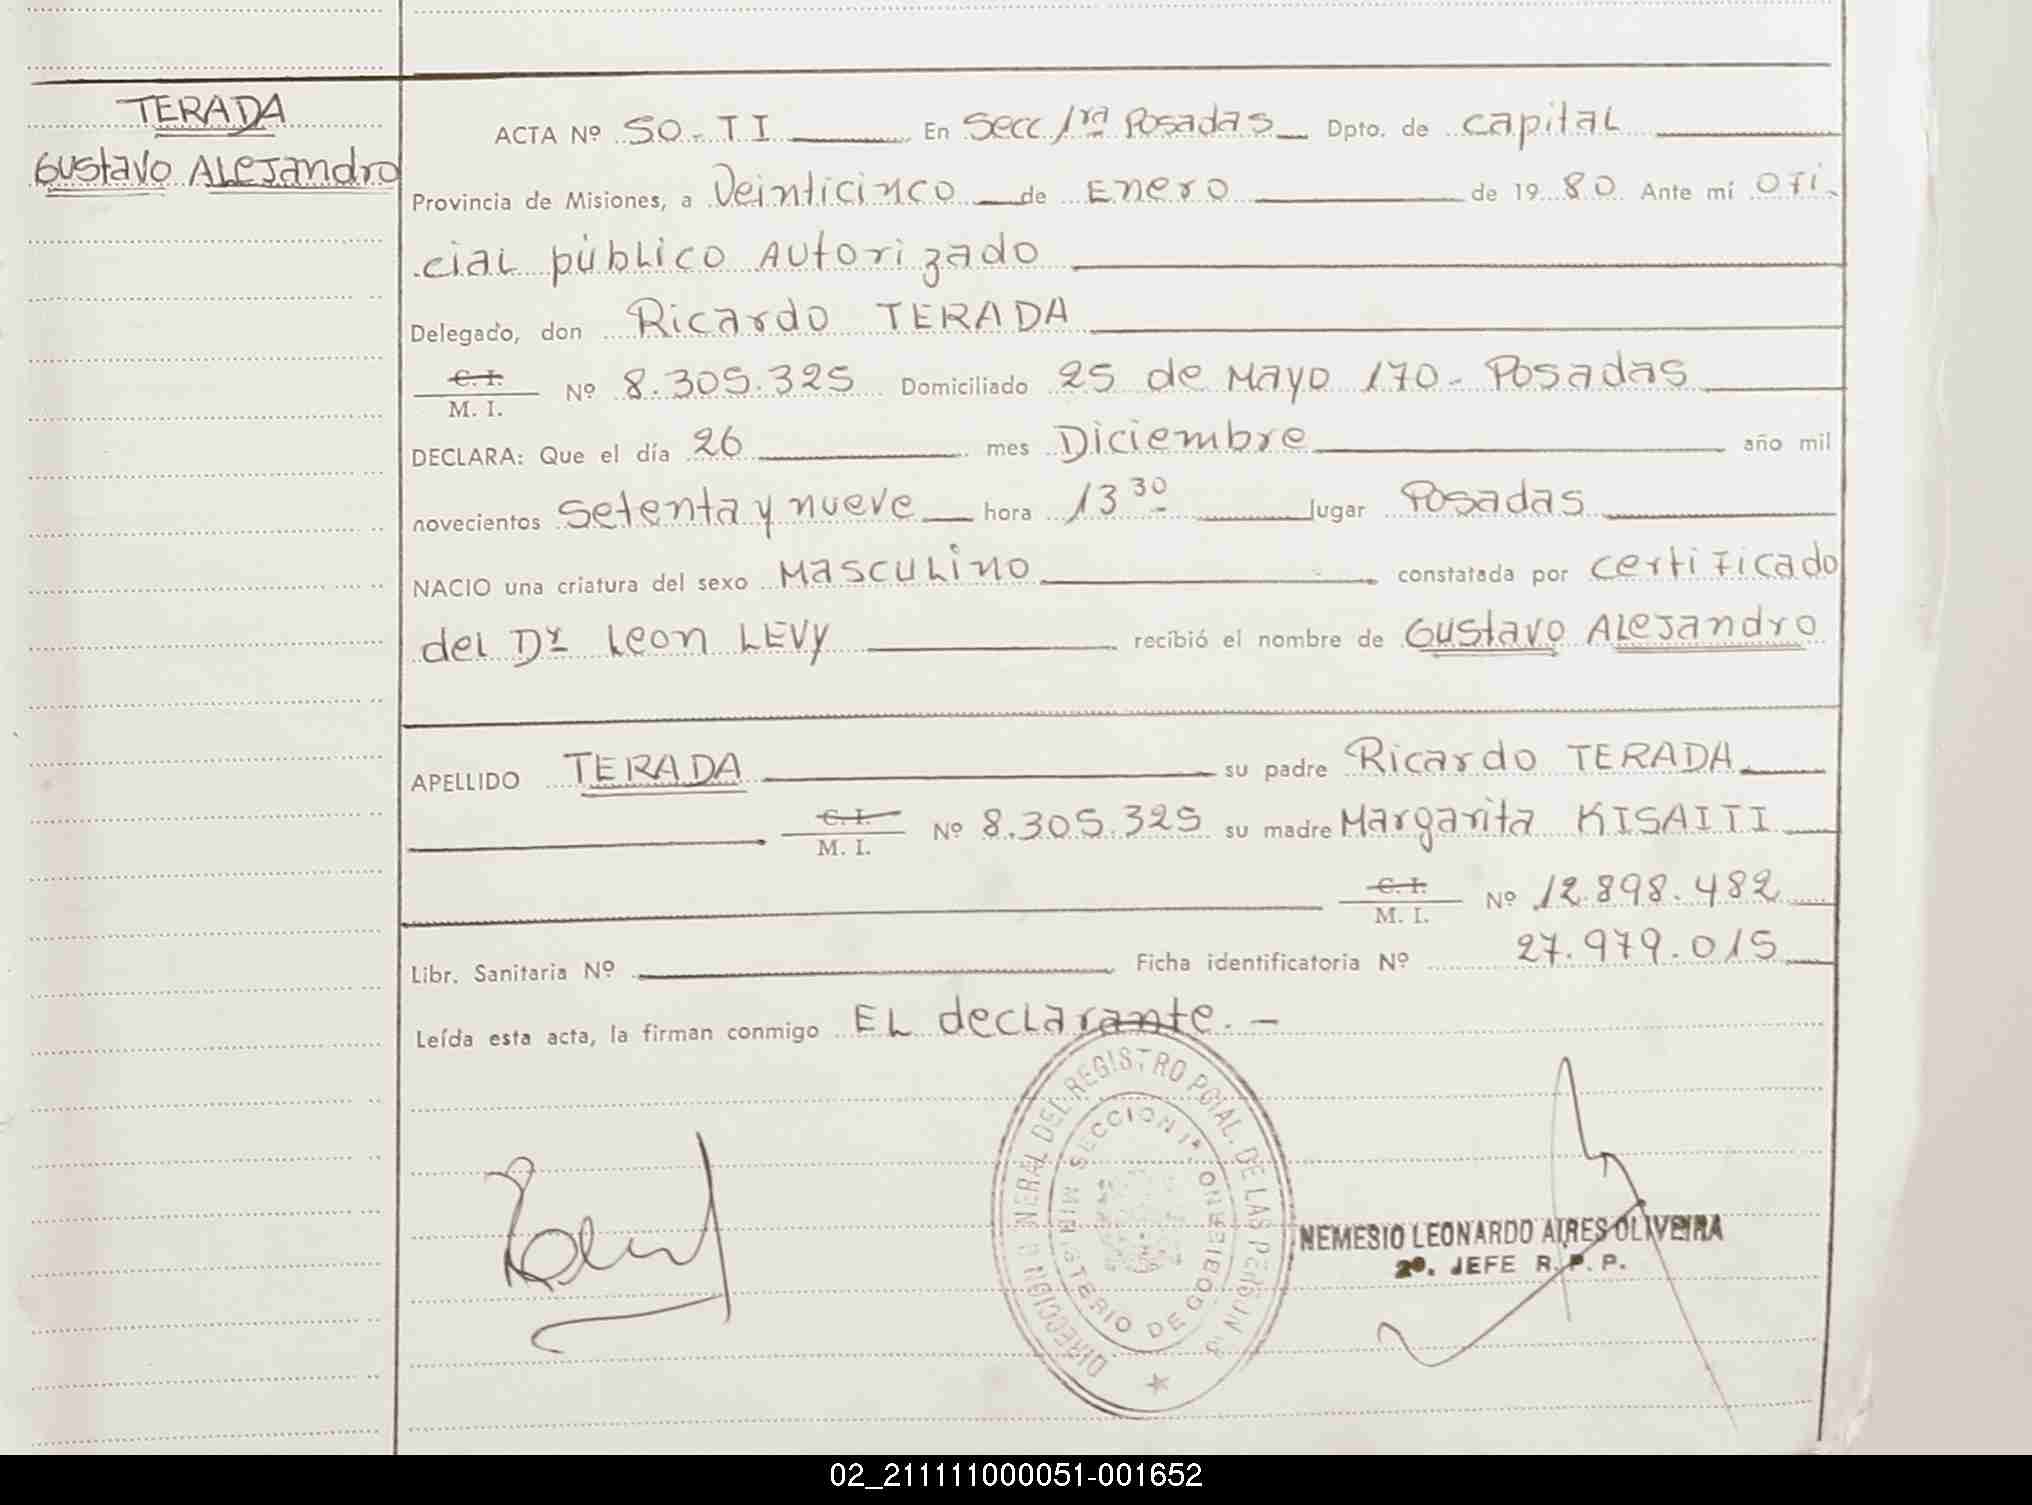 TERADA
Gustavo Alejandro
ACTA Nº 50-TI En Secc 1ra Posadas Dpto. de capital
Provincia de Misiones, a Veinticinco de Enero de 1980 Ante mí ofi-
cial público Autorizado
Delegado, don Ricardo TERADA
C. I.
M. I. Nº 8.305.325 Domiciliado 25 de Mayo 170- Posadas
DECLARA: Que el día 26 mes Diciembre año mil
novecientos setenta y nueve hora 13 30 lugar Posadas
NACIO una criatura del sexo Masculino constatada por certificado
del Dr Leon LEVY recibió el nombre de Gustavo Alejandro
APELLIDO TERADA su padre Ricardo TERADA
C. I.
M. I. Nº 8.305.325 su madre Margarita KISAITI
C. I.
M. I. Nº 12.898.482
Libr. Sanitaria Nº Ficha identificatoria Nº 27.979.015
Leída esta acta, la firman conmigo EL declarante.-
DIRECCION GENERAL DEL REGISTRO PCIAL. DE LAS PERSONAS
SECCION 1ª
MINISTERIO DE GOBIERNO
NEMESIO LEONARDO AIRES OLIVEIRA
2º. JEFE R. P. P.
02_211111000051-001652